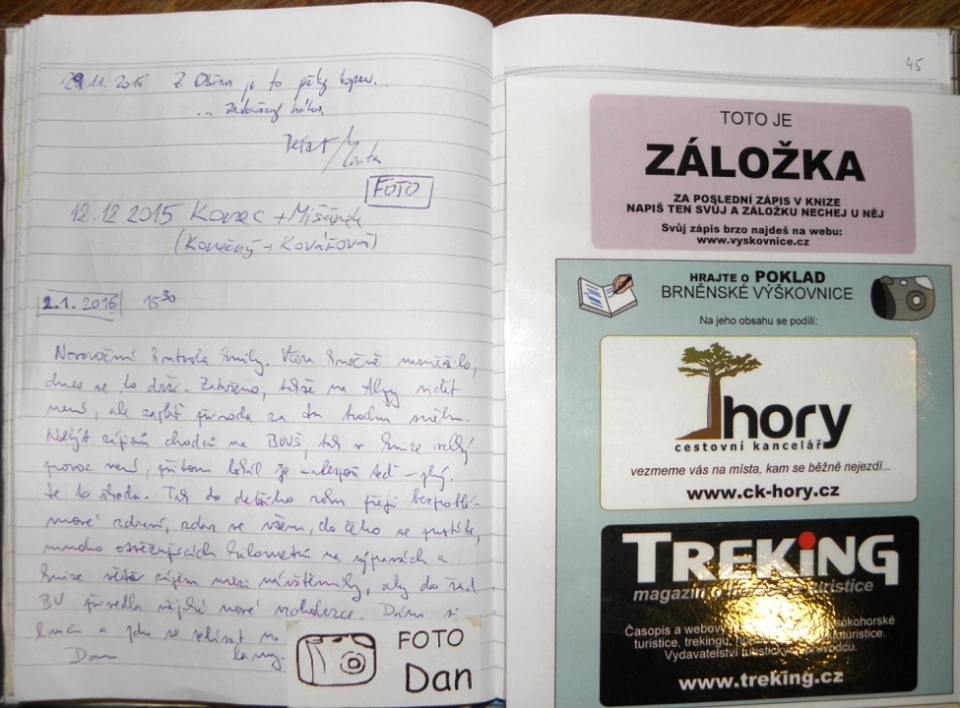 29.11.2015 Z Obřan je to pěkný kopec...
...
FOTO
12.12.2015 Konec + Mišánek
(Konečný + Kovářová)
2.1.2016 15³⁰
Novoroční kontrola knihy. Včera konečně
dnes se to drží. Zataženo, takže na Alpy vidět
není, ale zaplať příroda za tu trochu sněhu.
Nebýt zápisů chodců na BVVŠ, tak v knize velký
provoz není, přitom kopec je - alespoň teď - plný.
Je to škoda. Tak do dalšího roku přeji bezproblé-
mové zdraví, zdar ve všem, do čeho se pustíte,
mnoho osvěžujících kilometrů na výpravách a
knize větší zájem mezi návštěvníky, aby do řad
BV přivedla nějaké nové vrcholovce. Dám si
a jdu se
Dan
FOTO
Dan
45
TOTO JE
ZÁLOŽKA
ZA POSLEDNÍ ZÁPIS V KNIZE
NAPIŠ TEN SVŮJ A ZÁLOŽKU NECHEJ U NĚJ
Svůj zápis brzo najdeš na webu:
www.vyskovnice.cz
HRAJTE O POKLAD
BRNĚNSKÉ VÝŠKOVNICE
Na jeho obsahu se podílí:
hory
cestovní kancelář
vezmeme vás na místa, kam se běžně nejezdí...
www.ck-hory.cz
TREKING
magazín o turistice
Časopis a webový vysokohorské
turistice, trekingu,
Vydavatelství turistických průvodců.
www.treking.cz